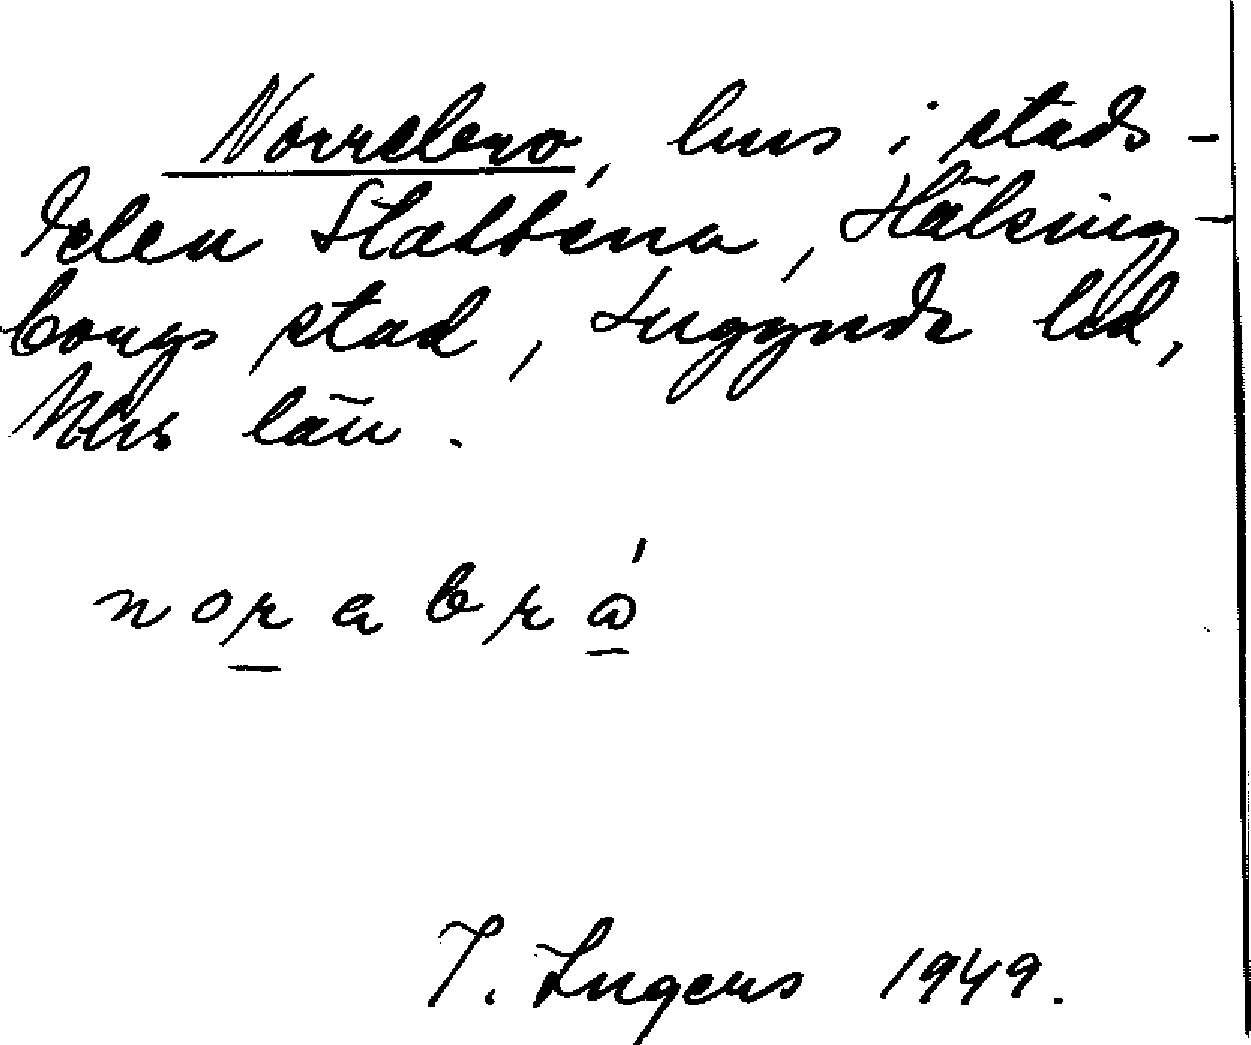 Norrebro, hus i stads-
delen Slottena, Hälsing-
borgs stad, Luggude hd,
Mhs län.
norabrå
I. Ingers 1949.